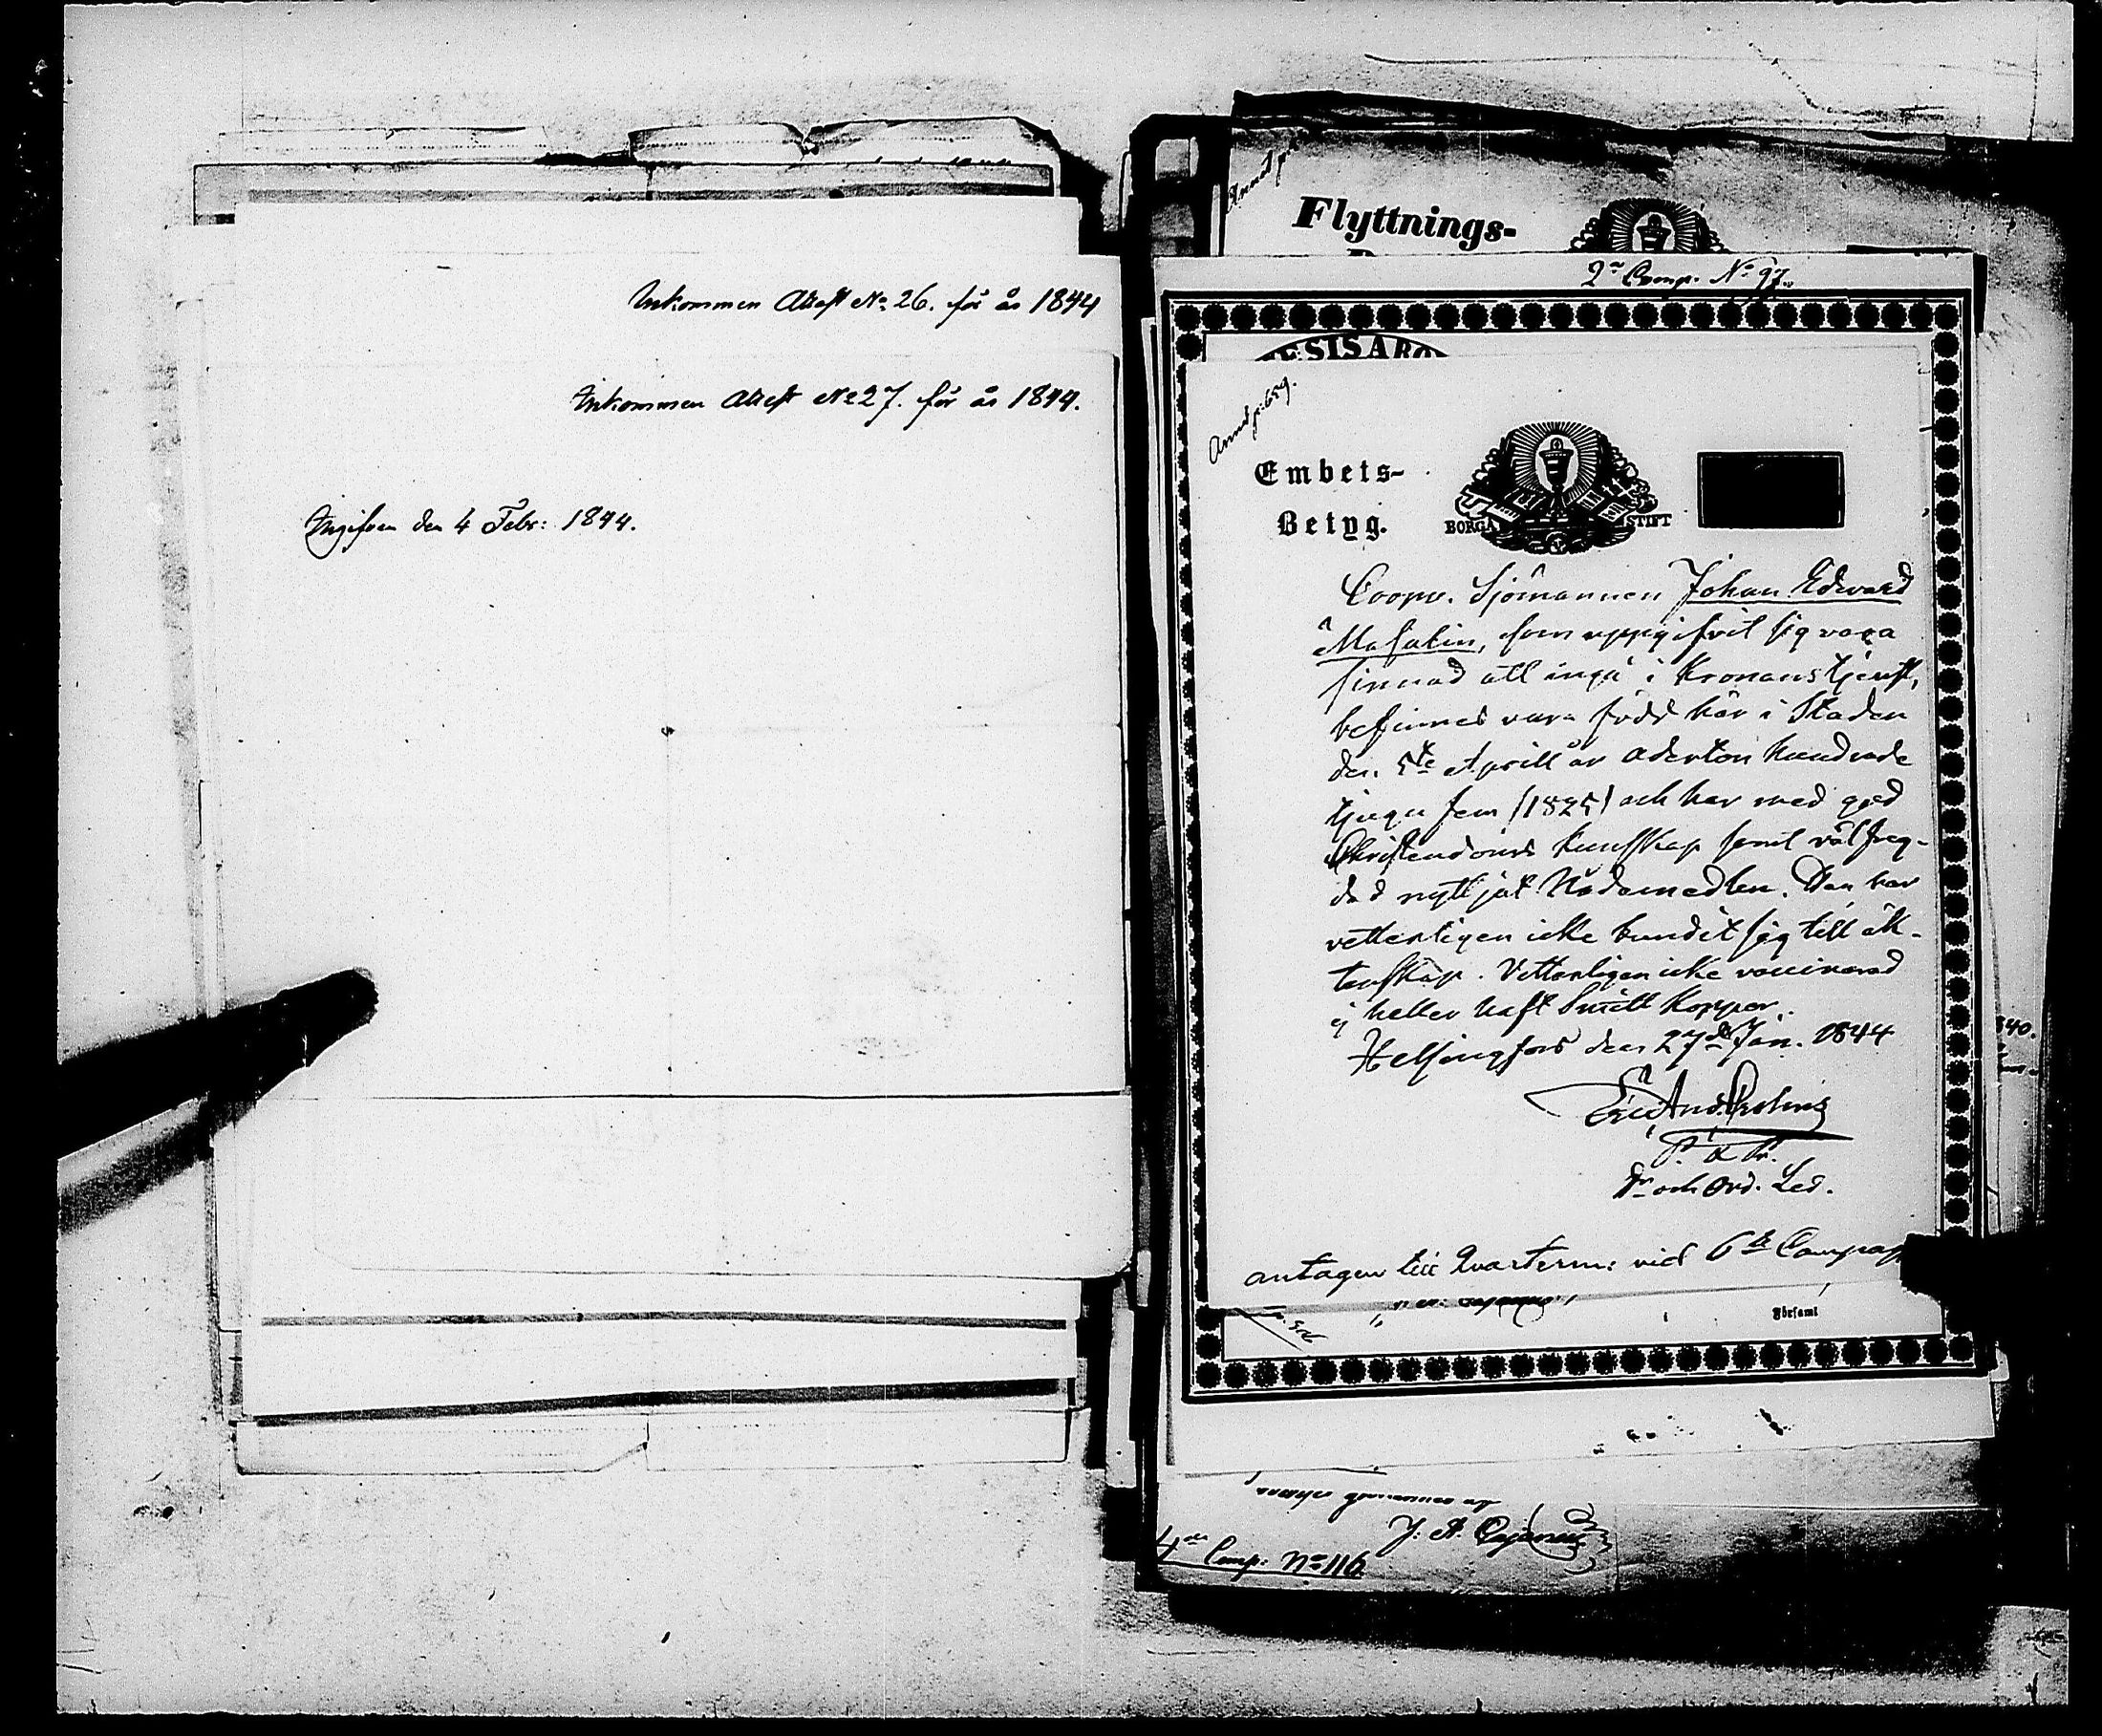 Inkommen Attest No 26. för år 1844
Inkommen Attest No 27. för år 1844.
Ingifven den 4 Febr: 1844.
Flyttnings-
2n Comp. No 97.
Embets-
Betyg.
BORGÅ STIFT
Coopv. Sjömannen Johan Edvard
Masalin, som uppgifvit sig vara
sinnad att ingå i Kronans tjenst,
befinnes vara född här i Staden
den 5te Aprill år Aderton hundrade
tjugu fem (1825) och har med god
Christendoms kunskap samt välfreg-
dad nyttjat Nådamedlen. Han har
vetterligen icke bundit sig till äk-
tenskap. Vetterligen icke vaccinerad
ej heller haft Smitt koppor.
Helsingfors den 27de Jan. 1844
Dr och Ord. Led.
antagen till Qvarterm: vid 6te
Församl
J. A. Cajanus
4de Comp: No 116
340.